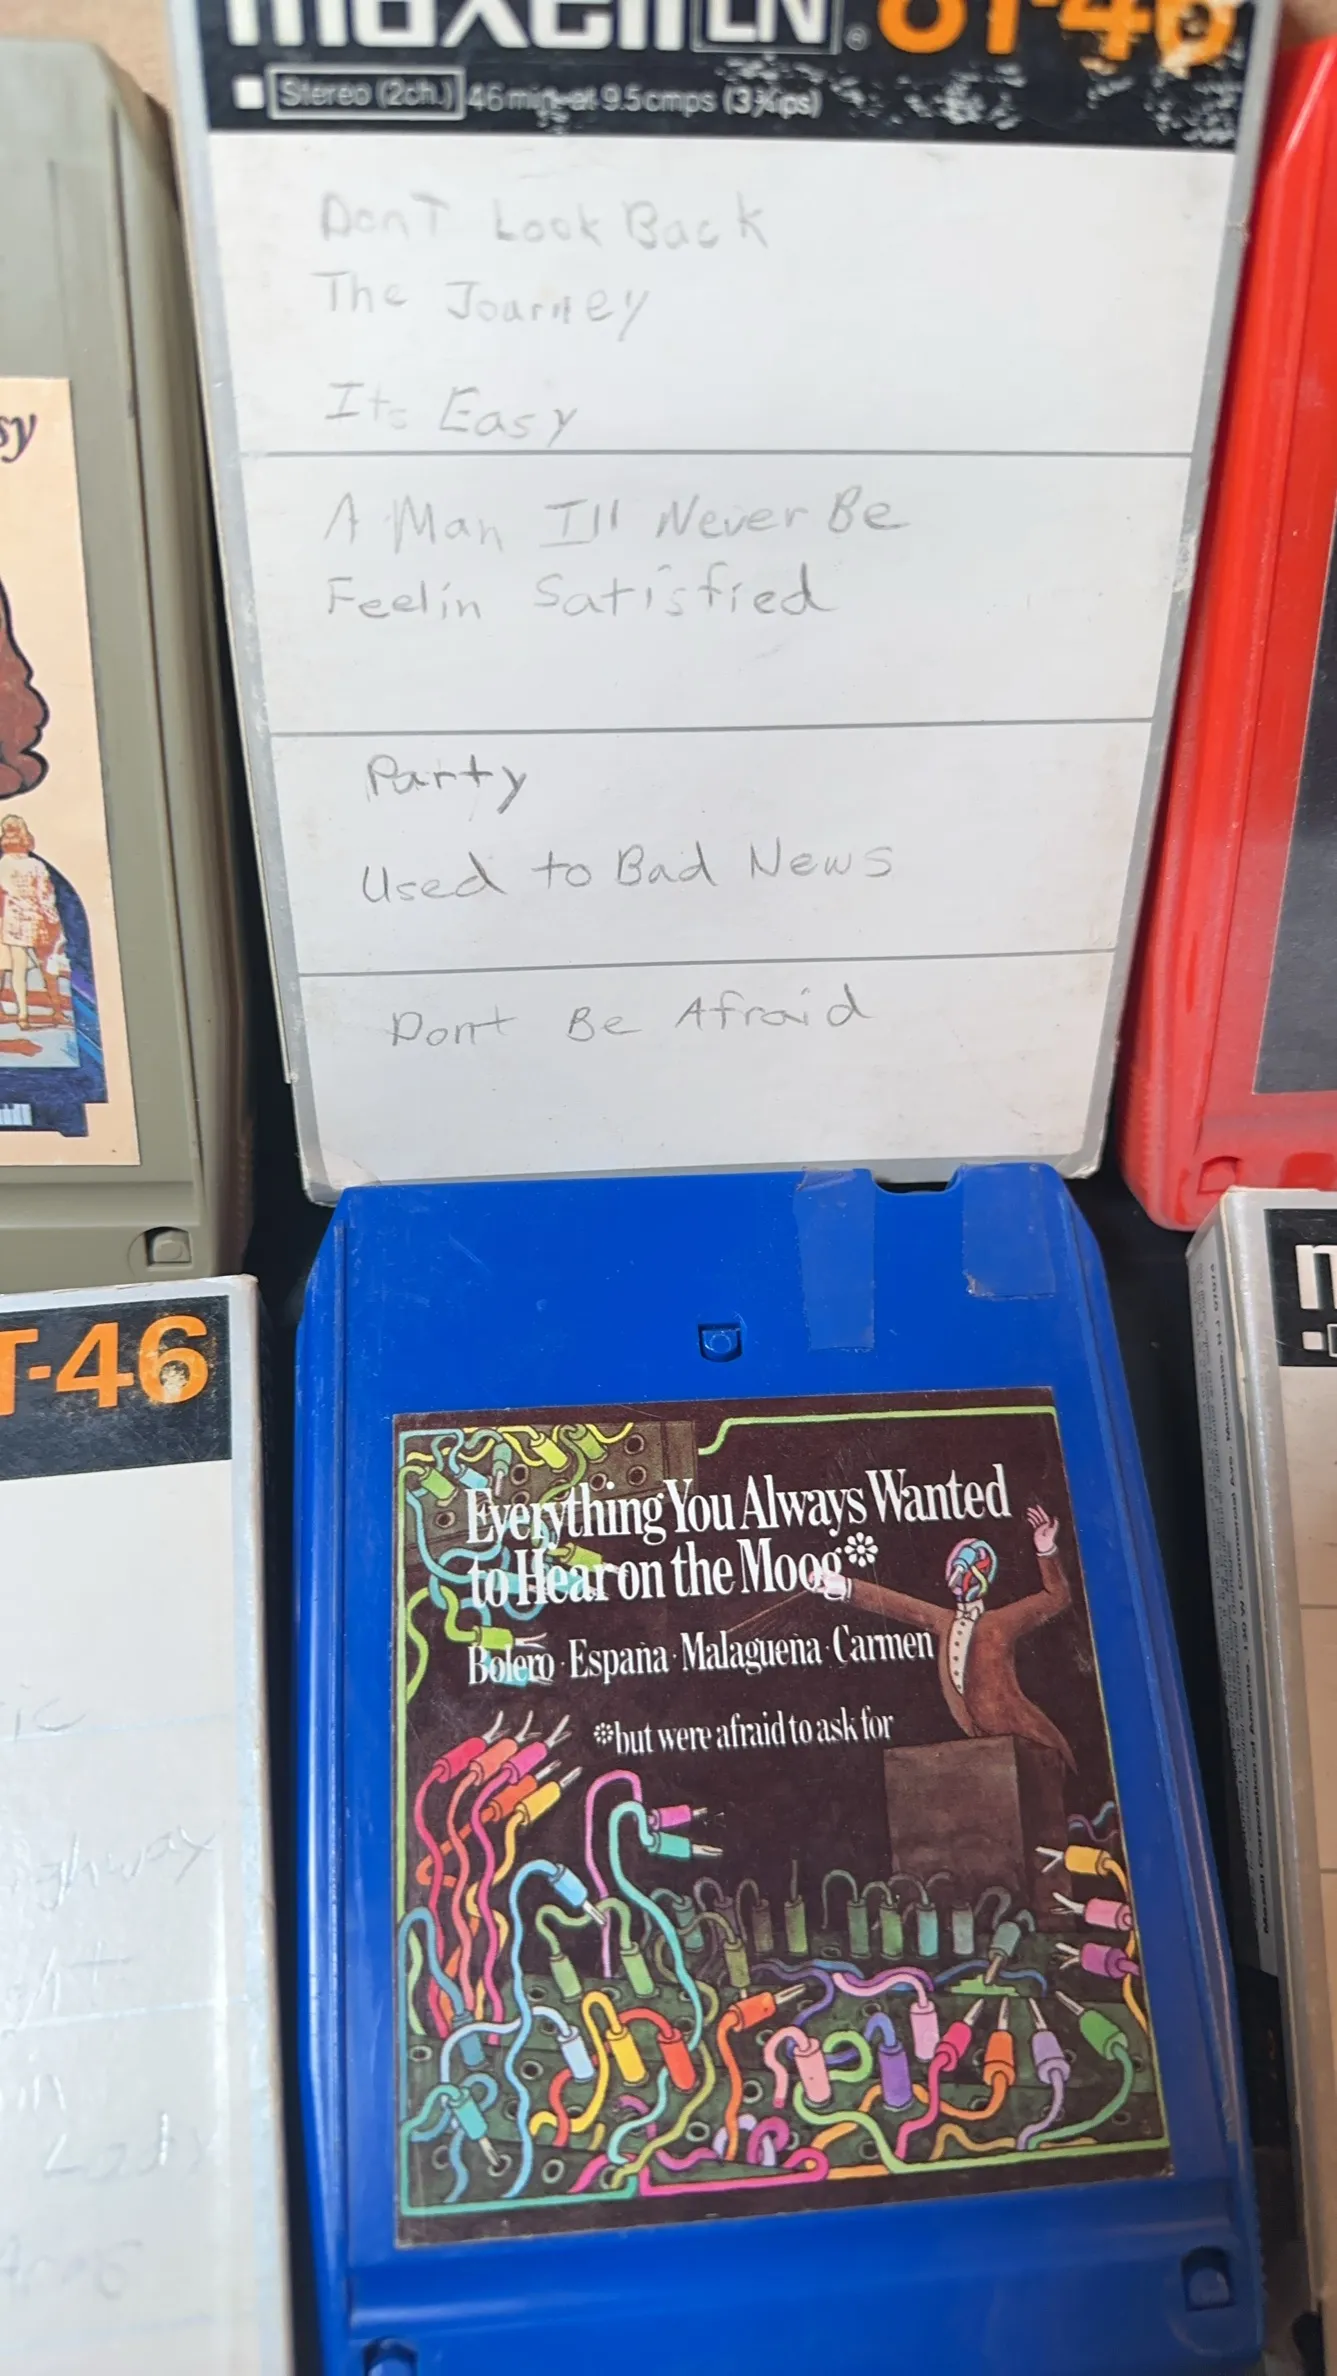 maxell LN® 8T-46
Stereo (2ch.) 46 min at 9.5cmps (3¾ips)
DonT Look Back
The Journey
Its Easy
A Man I'll Never Be
Feelin Satisfied
Party
Used to Bad News
Dont Be Afraid
sy
T-46
ic
ighway
in
Everything You Always Wanted
to Hear on the Moog*
Bolero · España · Malagueña · Carmen
*but were afraid to ask for
m